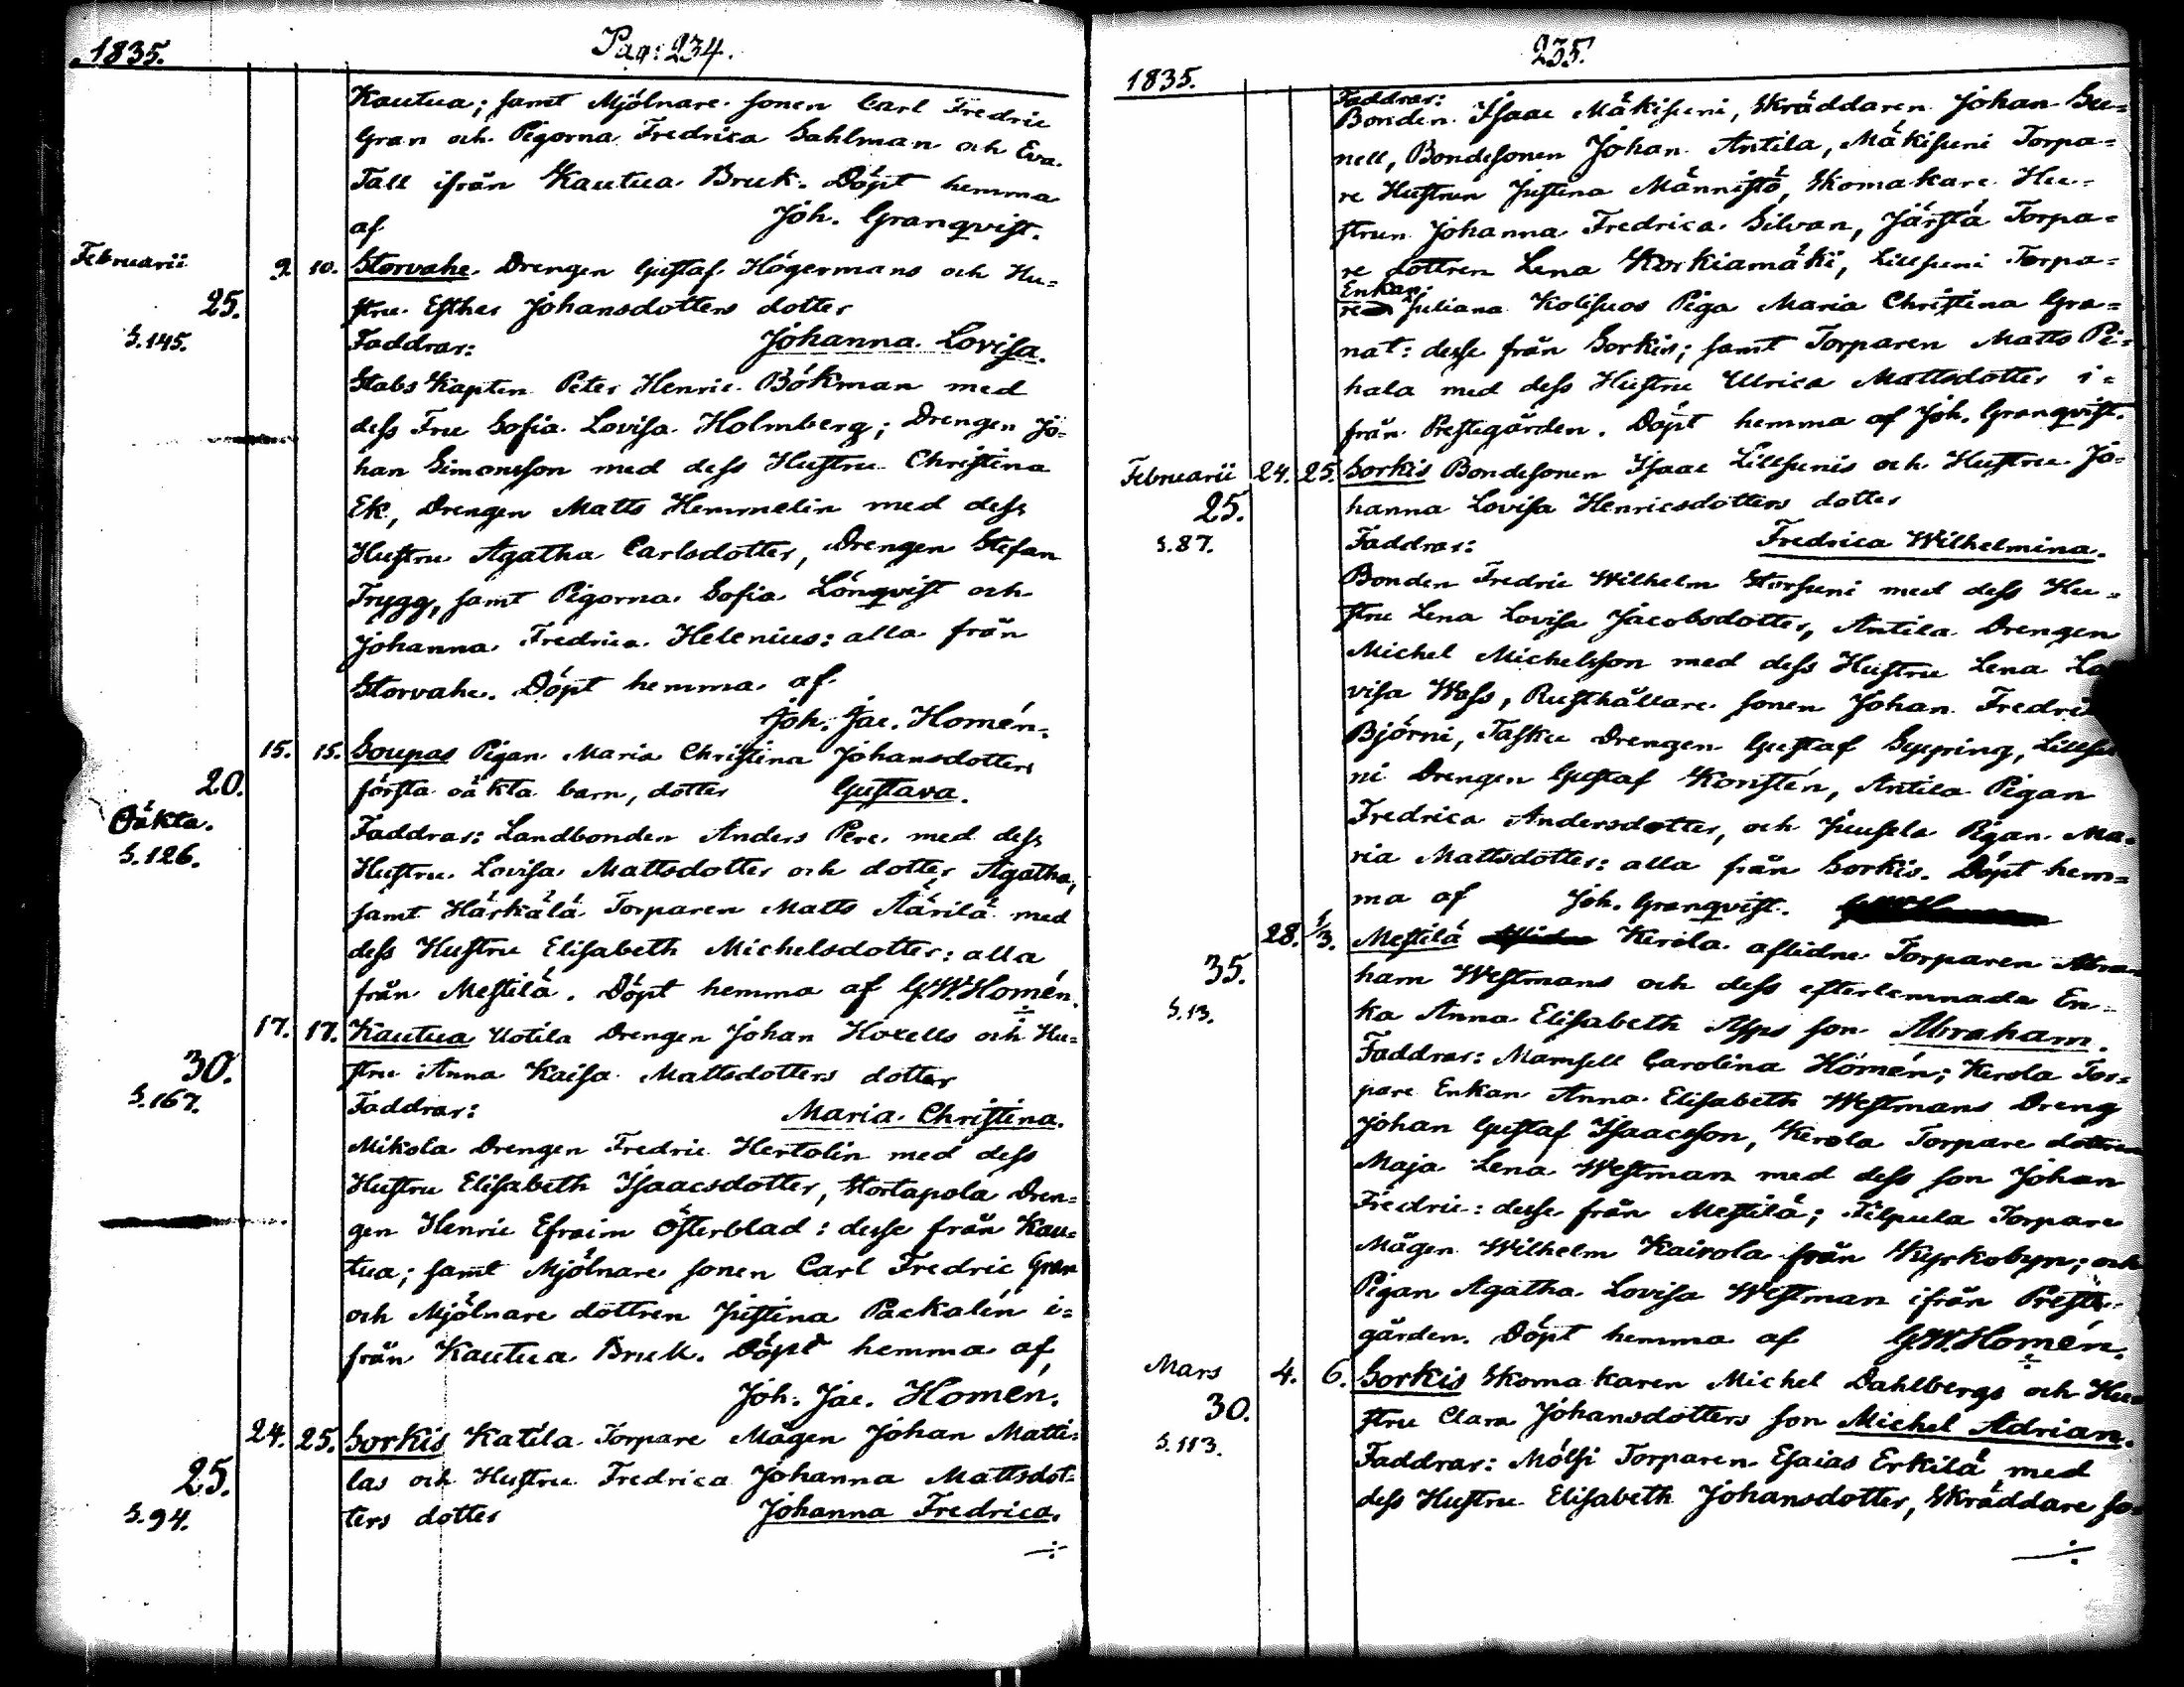 1835.
Pag: 234.
Kautua; samt Mjölnare sonen Carl Fredric
Gran och Pigorna Fredrica Sahlman och Eva
Tall ifrån Kautua Bruk. Döpt hemma
af Joh. Granqvist.
Februarii 9. 10. Storvahe Drengen Gustaf Högermans och Hu=
25. stru Esther Johansdotters dotter
S.145. Faddrar: Johanna Lovisa.
Stabs Kapten Peter Henric Bökman med
dess Fru Sofia Lovisa Holmberg; Drengen Jo=
han Simonsson med dess Hustru Christina
Ek, Drengen Matts Hemmelin med dess
Hustru Agatha Carlsdotter, Drengen Stefan
Trygg, samt Pigorna Sofia Lönqvist och
Johanna Fredrica Helenius: alla från
Storvahe. Döpt hemma af
Joh. Jac. Homén.
15. 15. Soupas Pigan Maria Christina Johansdotters
20. första oäkta barn, dotter Gustava.
Oäkta. Faddrar: Landbonden Anders Pere med dess
S.126. Hustru Lovisa Mattsdotter och dotter Agatha,
samt Härkälä Torparen Matts Äärilä med
dess Hustru Elisabeth Michelsdotter: alla
från Mestilä. Döpt hemma af G.W. Homén.
17. 17. Kautua Uotila Drengen Johan Hoxells och Hu=
30. stru Anna Kaisa Mattsdotters dotter
S.167. Faddrar: Maria Christina.
Mikola Drengen Fredric Hertolin med dess
Hustru Elisabeth Isaacsdotter, Stortapola Dren=
gen Henric Efraim Österblad: desse från Kau=
tua; samt Mjölnare sonen Carl Fredric Gran
och Mjölnare dottren Justina Packalén i=
från Kautua Bruk. Döpt hemma af
Joh. Jac. Homén.
24. 25. Sorkis Katila Torpare Mågen Johan Matti=
25. las och Hustru Fredrica Johanna Mattsdot=
S.94. ters dotter Johanna Fredrica.
÷
235.
1835.
Faddrar:
Bonden Isaac Mäkisuni, Skräddaren Johan Su=
nell, Bondesonen Johan Antila, Mäkisuni Torpa=
re Hustrun Justina Männistö, Skomakare Hu=
strun Johanna Fredrica Silvan, Järstä Torpa=
re dottren Lena Korkiamäki, Lillsuni Torpa=
Enkan:
re Juliana Kolisuos Piga Maria Christina Gra=
nat: desse från Sorkis; samt Torparen Matts Pi=
hala med dess Hustru Ulrica Mattsdotter i=
från Prestegården. Döpt hemma af Joh. Granqvist.
Februarii 24. 25. Sorkis Bondesonen Isaac Lillsunis och Hustru Jo=
25. hanna Lovisa Henricsdotters dotter
S.87. Faddrar: Fredrica Wilhelmina.
Bonden Fredric Wilhelm Storsuni med dess Hu=
stru Lena Lovisa Jacobsdotter, Antila Drengen
Michel Michelsson med dess Hustru Lena Lo
visa Wass, Rusthållare sonen Johan Fredric
Björni, Tasku Drengen Gustaf Sepping, Lillsu
ni Drengen Gustaf Konstén, Antila Pigan
Fredrica Andersdotter, och Juusela Pigan Ma=
ria Mattsdotter: alla från Sorkis. Döpt hem=
ma af Joh. Granqvist.
28. 1/3. Mestilä Kerola aflidne Torparen Abra
35. ham Westmans och dess efterlemnade En=
S.13. ka Anna Elisabeth Asps son Abraham.
Faddrar: Mamsell Carolina Homén; Kerola Tor=
pare Enkan Anna Elisabeth Westmans Dreng
Johan Gustaf Isaacsson, Kerola Torpare dottren
Maja Lena Westman med dess son Johan
Fredric: desse från Mestilä; Filpula Torpare
Mågen Wilhelm Kairola från Kyrkobyn; och
Pigan Agatha Lovisa Westman ifrån Preste=
gården. Döpt hemma af G.W. Homén.
Mars 4. 6. Sorkis Skomakaren Michel Dahlbergs och Hu=
30. stru Clara Johansdotters son Michel Adrian.
S.113. Faddrar: Mölsi Torparen Esaias Erkilä med
dess Hustru Elisabeth Johansdotter, Skräddare so=
÷